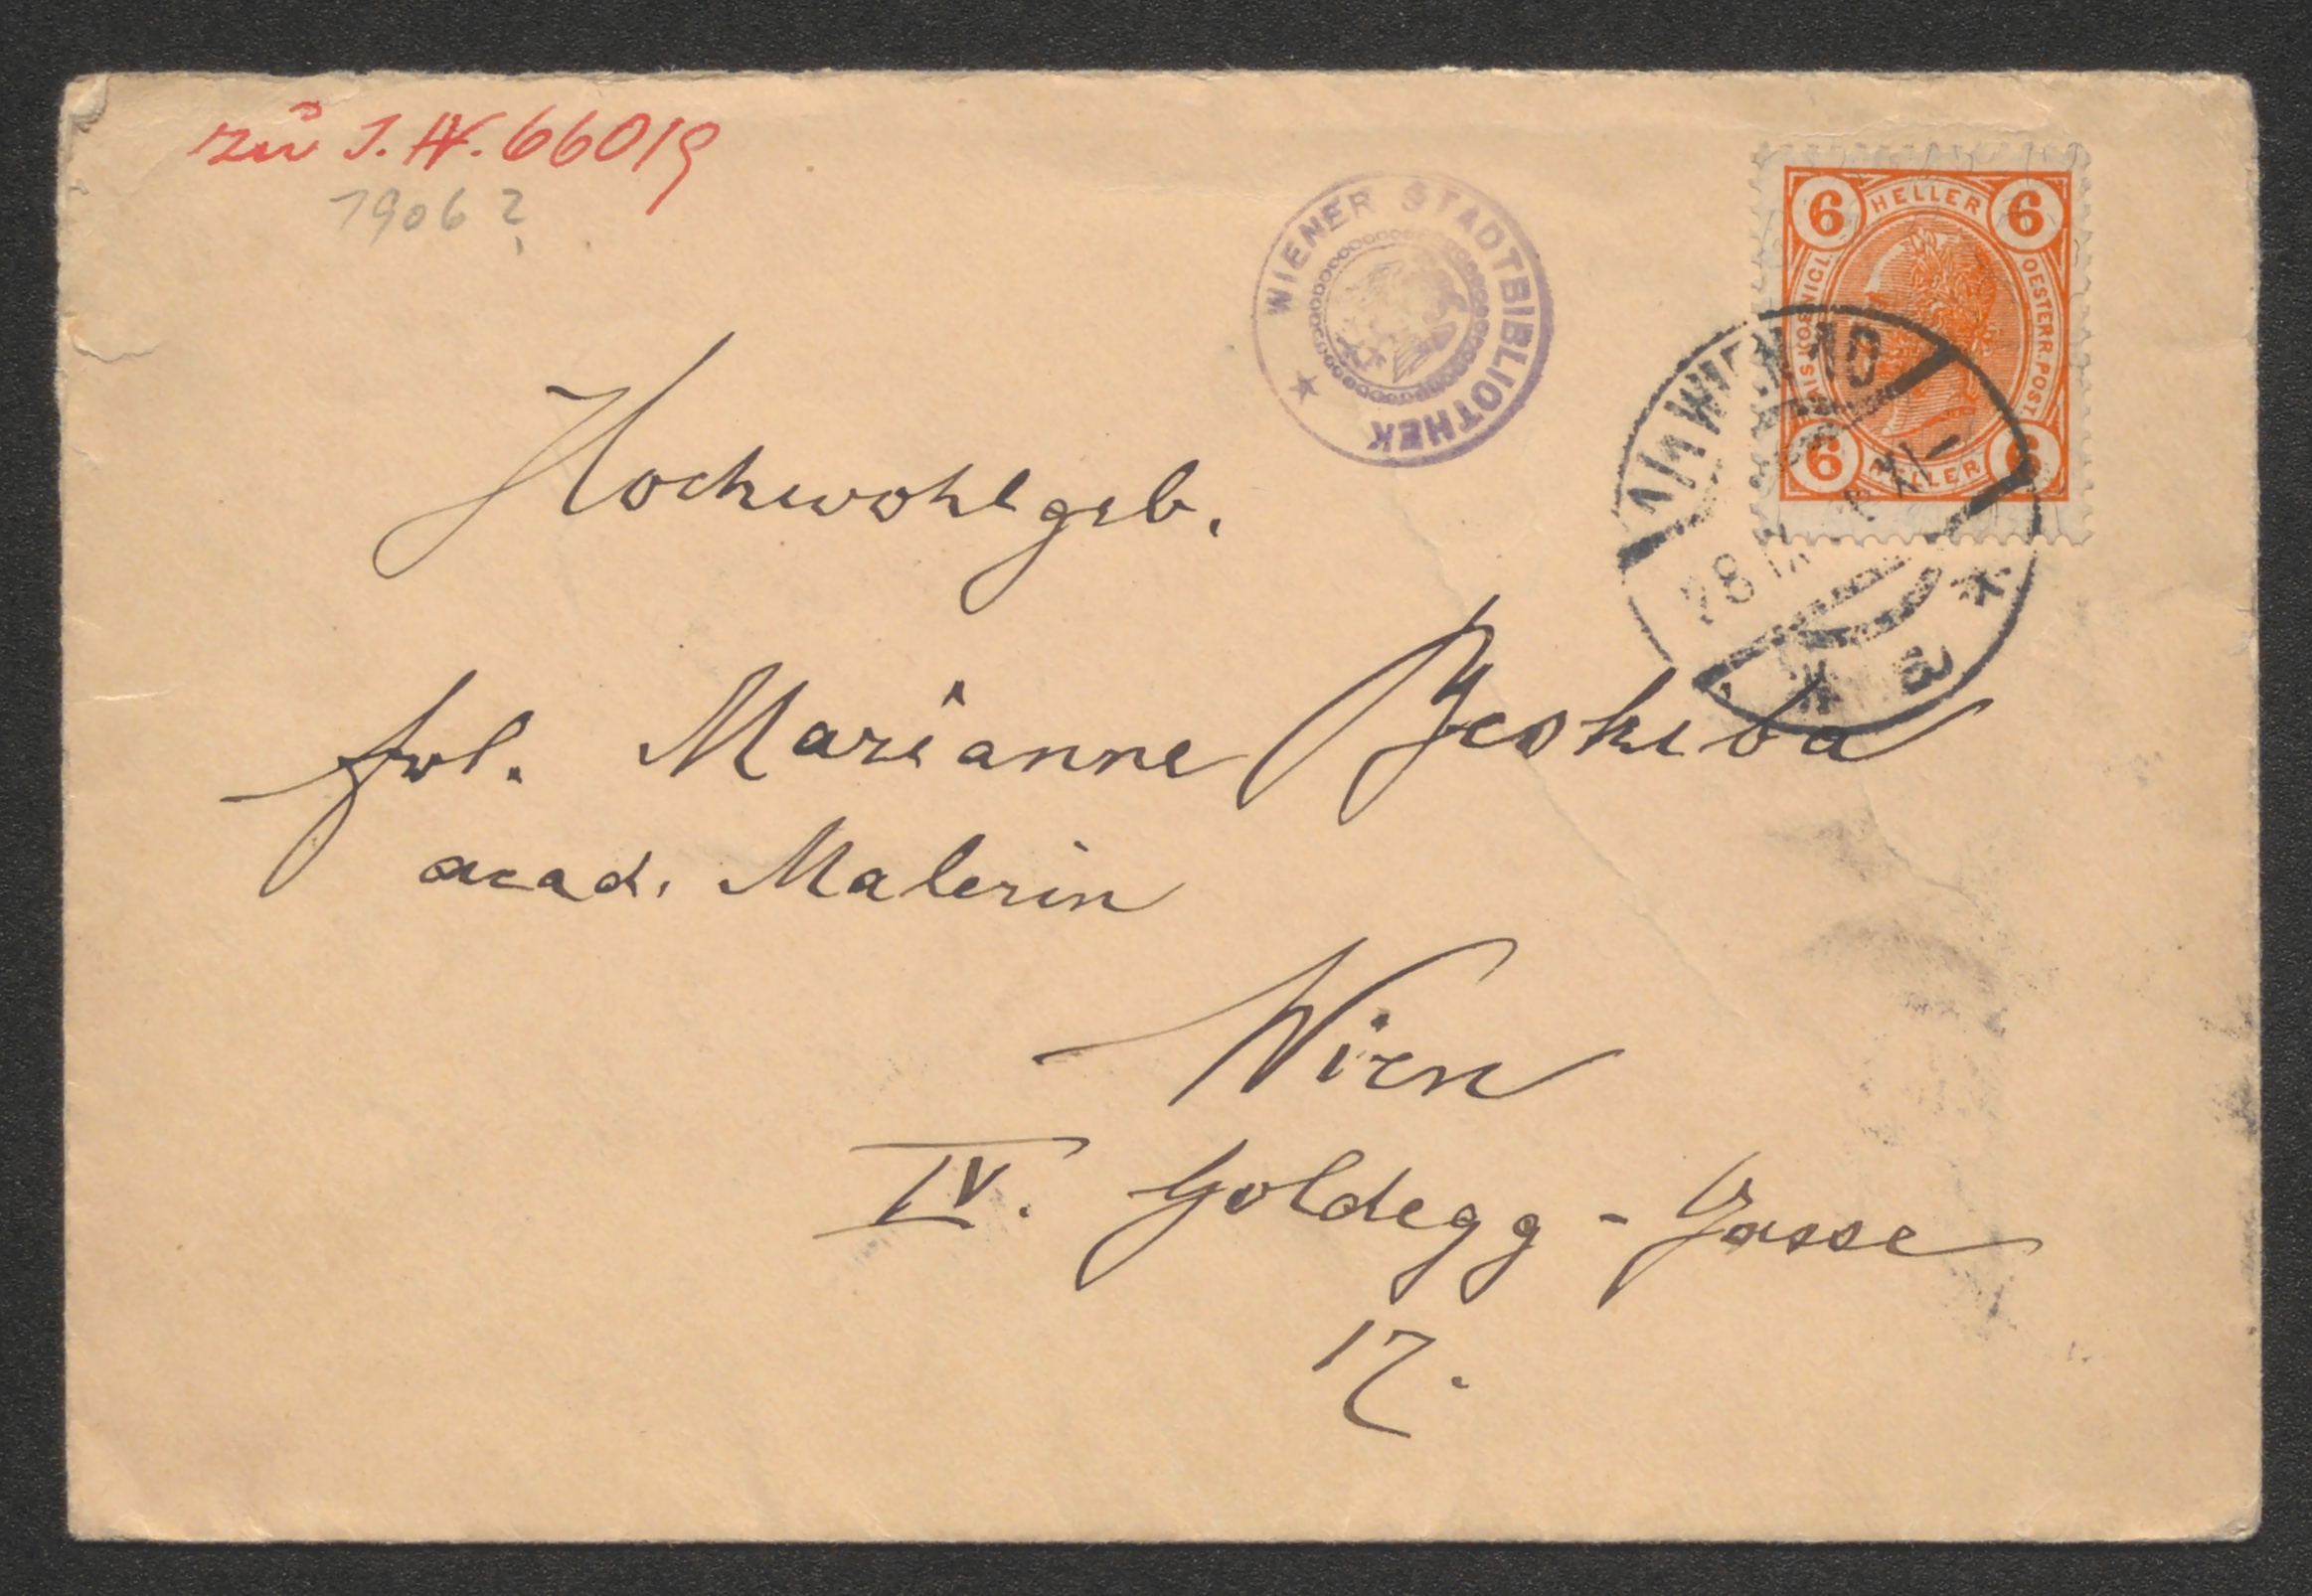 zu I.N. 66019
1906?
WIENER STADTBIBLIOTHEK
6 HELLER 6
KAIS. KOENIGL. OESTERR. POST.
6 HELLER 6
1/1 WIEN
28 IX
Hochwohlgeb.
frl. Marianne
acad. Malerin
Wien
IV. Goldegg-Gasse
17.